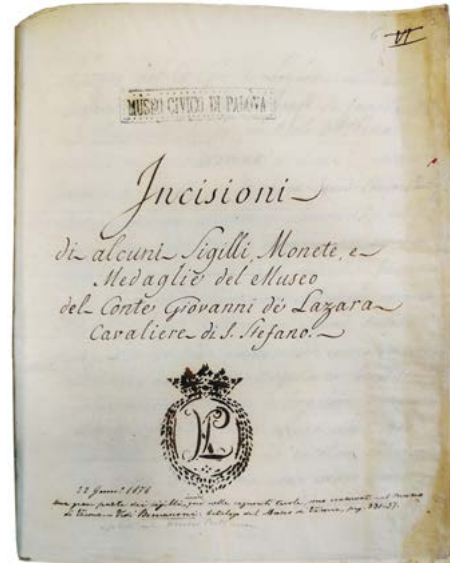 VI
MUSEO CIVICO DI PADOVA
Incisioni
di alcuni Sigilli, Monete, e
Medaglie del Museo
del Conte Giovanni de' Lazara
Cavaliere di S. Stefano.
22 Genn.° 1878
Una gran parte dei sigilli nella seguente tavola, ora conservati nel Museo
di Verona. Vedi Catalogo del Museo di Verona, pag.